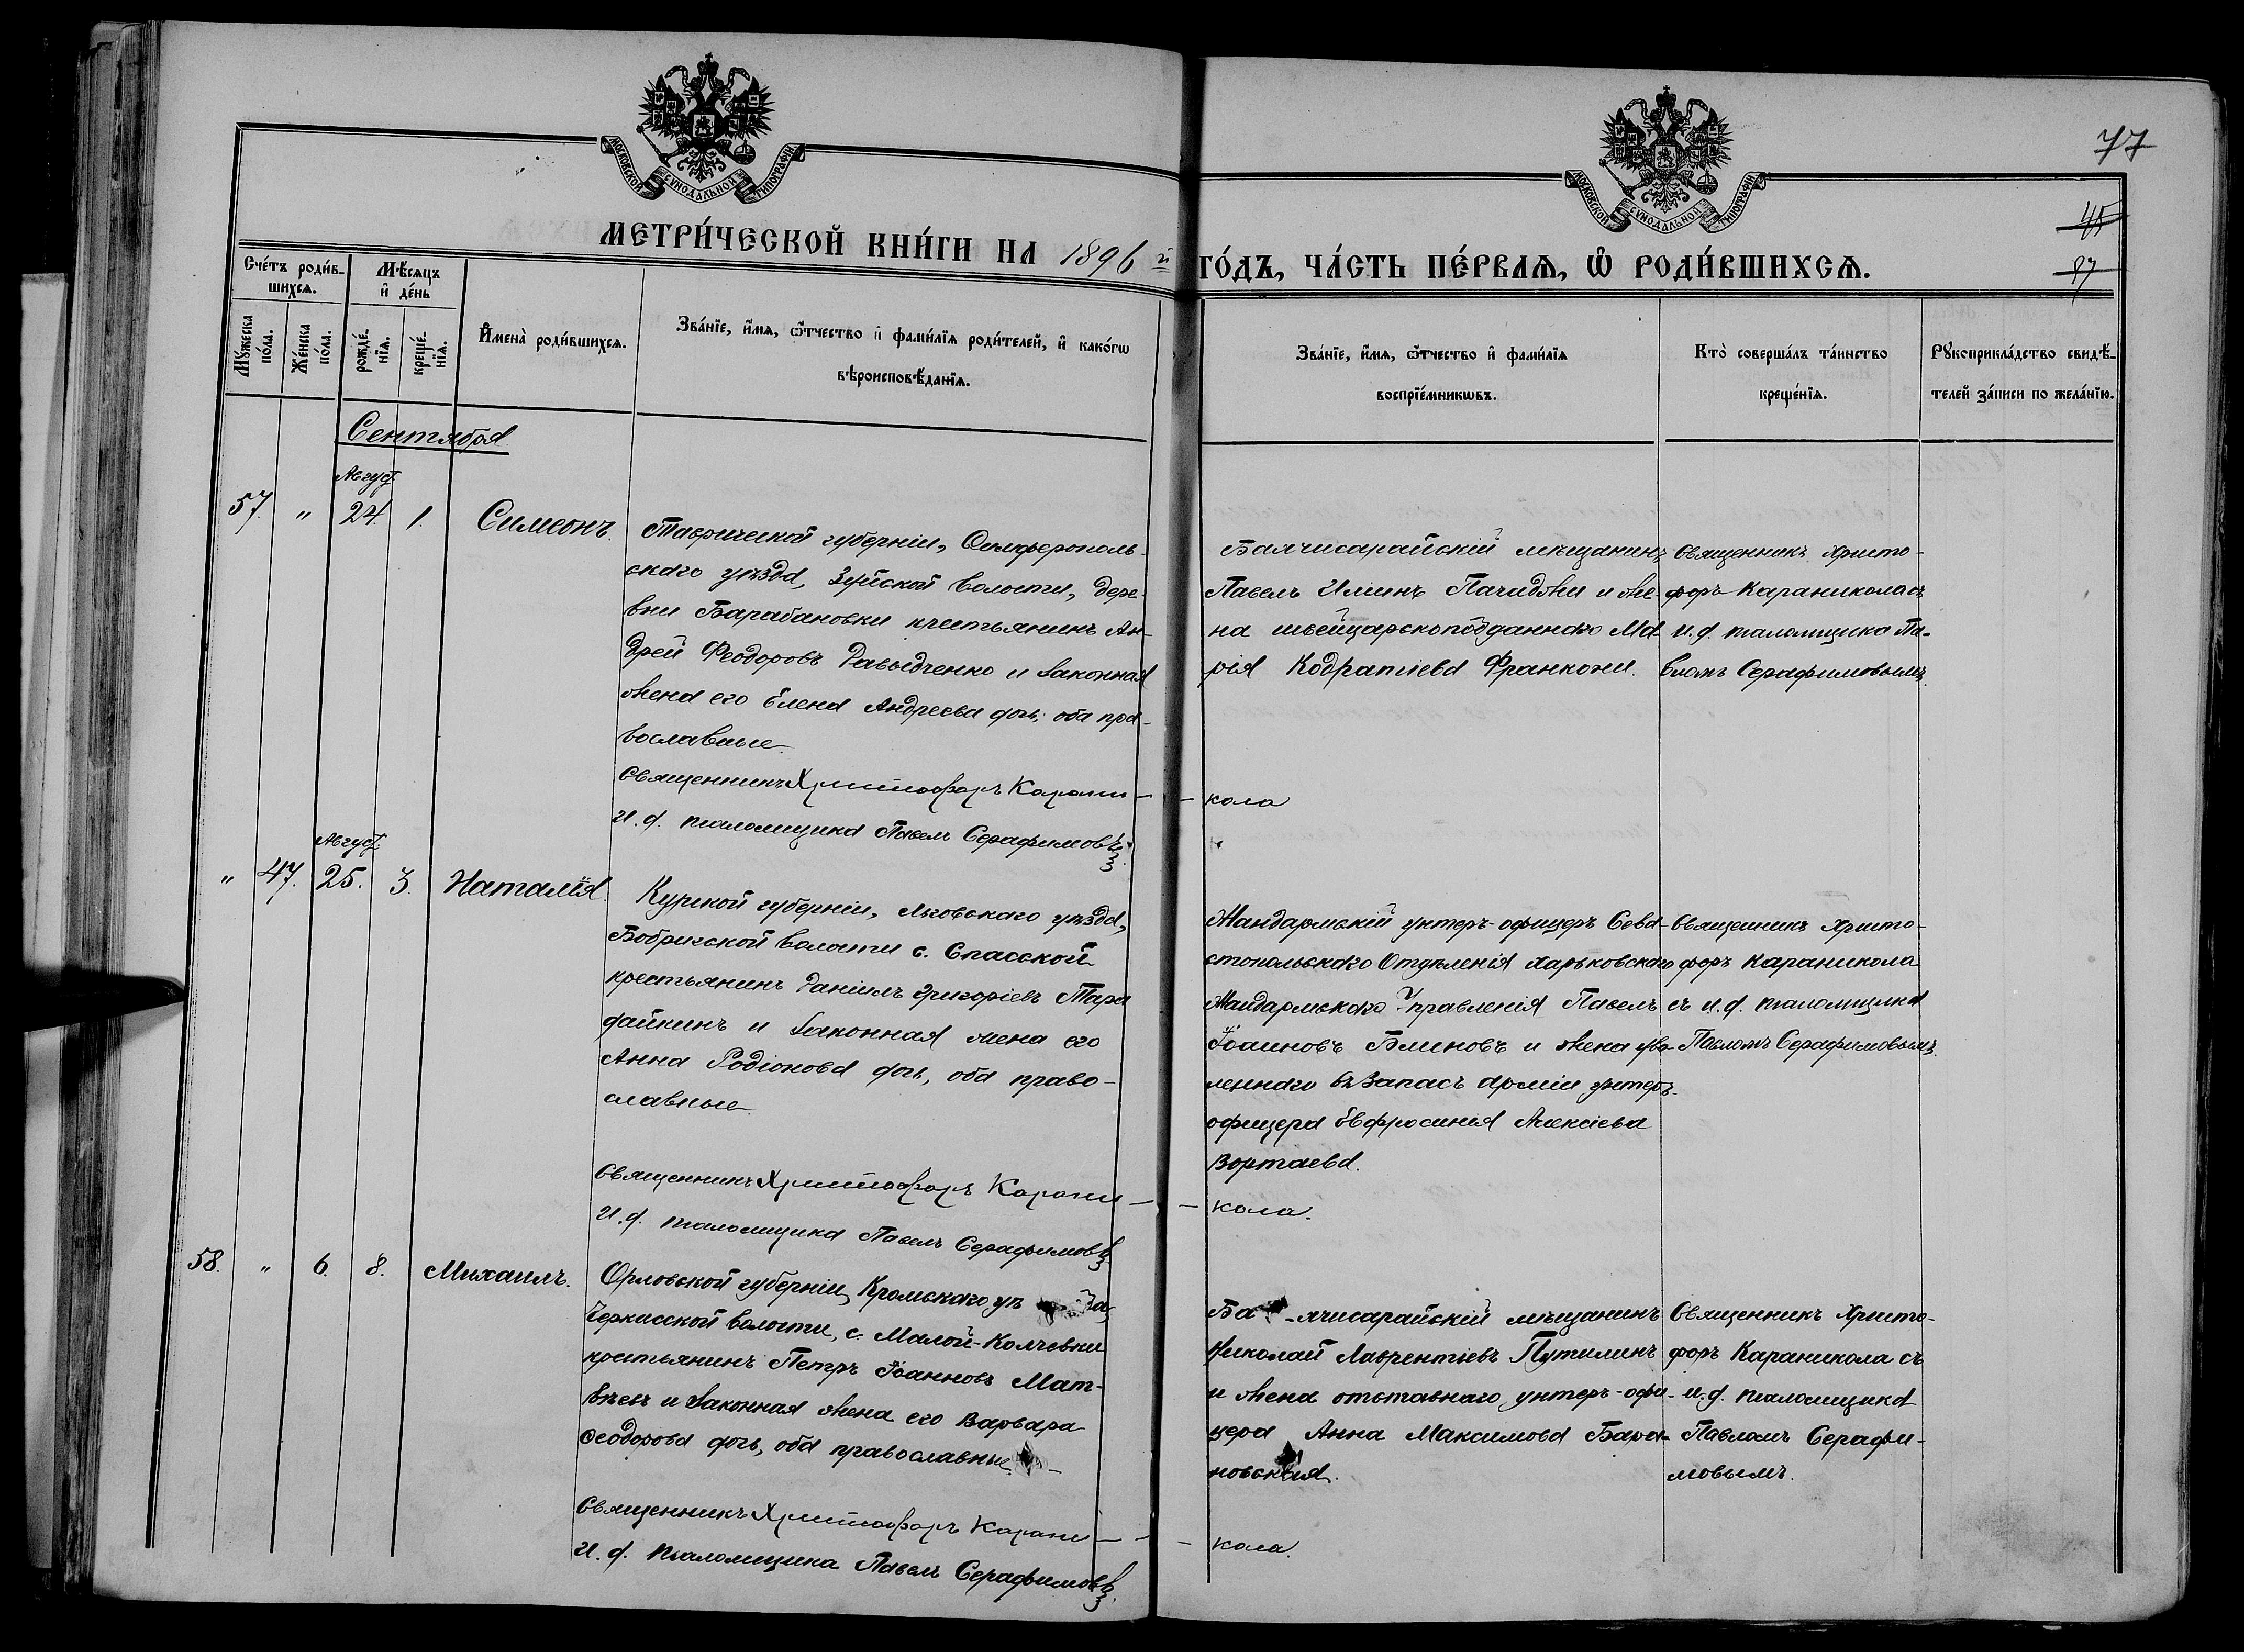 МОСКОВСКОЙ СѴНОДАЛЬНОЙ ТИПОГРАФІИ
МОСКОВСКОЙ СѴНОДАЛЬНОЙ ТИПОГРАФІИ
77
45
МЕТРИ́ЧЕСКОЙ КНИ́ГИ НА 1896 й ГО́ДЪ, ЧА́СТЬ ПЕ́РВАѦ, Ѡ҆ РОДИ́ВШИХСѦ.
Сче́тъ роди́в-
шихсѧ.
Мꙋ́жеска
по́ла.
Же́нска
по́ла.
Мѣ́сѧцъ
и҆ де́нь
рожде́-
нїѧ.
креще́-
нїѧ.
И҆мена̀ роди́вшихсѧ.
Зва́нїе, и҆́мѧ, ѻ҆́тчество и҆ фами́лїѧ роди́телей, и҆ како́гѡ
вѣроисповѣ́данїѧ.
Зва́нїе, и҆́мѧ, ѻ҆́тчество и҆ фами́лїѧ
воспрїе́мникѡвъ.
Кто̀ соверша́лъ та́инство
креще́нїѧ.
Рꙋкоприкла́дство свидѣ́-
телей за́писи по жела́нїю.
Сентября
Август
57. " 24. 1. Симеонъ.
Таврической губерніи, Симферополь-
скаго уѣзда, Зуйской волости, дере-
вни Барабановки крестьянинъ Ан-
дрей Феодоровъ Давыдченко и законная
жена его Елена Андреева дочь; оба пра-
вославные
Бахчисарайскій мѣщанинъ
Павелъ Ильинъ Пачаджи и же-
на швейцарскоподданнаго Ма-
рія Кодратіева Франкони.
Священникъ Христо-
форъ Караникола съ
и. д. псаломщика Па-
вломъ Серафимовымъ.
Священникъ Христофоръ Карани- - кола
И. д. псаломщика Павелъ Серафимовъ.
Август
" 47. 25. 3. Наталія.
Курской губерніи, Льговскаго уѣзда,
Бобрикской волости с. Спасской
крестьянинъ Даніилъ Григоріевъ Тара
файкинъ и законная жена его
Анна Родіонова дочь, оба право-
славные
Жандармскій унтеръ-офицеръ Сева-
стопольскаго Отдѣленія Харьковскаго
Жандармскаго Управленія Павелъ
Іоанновъ Блиновъ и жена уво-
леннаго въ запасъ арміи унтеръ-
офицера Евфросинія Алексіева
Вортаева.
Священникъ Христо-
форъ Караникола
съ и. д. псаломщика
Павломъ Серафимовымъ.
Священникъ Христофоръ Карани- - кола.
И. д. псаломщика Павелъ Серафимовъ.
58. " 6. 8. Михаилъ.
Орловской губерніи, Кромскаго уѣ за,
Черкасской волости, с. Малой-Колчевки
крестьянинъ Петръ Іоанновъ Мат-
вѣевъ и законная жена его Варвара
Феодорова дочь, оба православные.
Ба -хчисарайскій мѣщанинъ
Николай Лаврентіевъ Путилинъ
и жена отставнаго унтеръ-офи-
цера Анна Максимова Бара-
новская.
Священникъ Христо-
форъ Караникола съ
и. д. псаломщика
Павломъ Серафи-
мовымъ.
Священникъ Христофоръ Карани - - кола.
И. д. псаломщика Павелъ Серафимовъ.